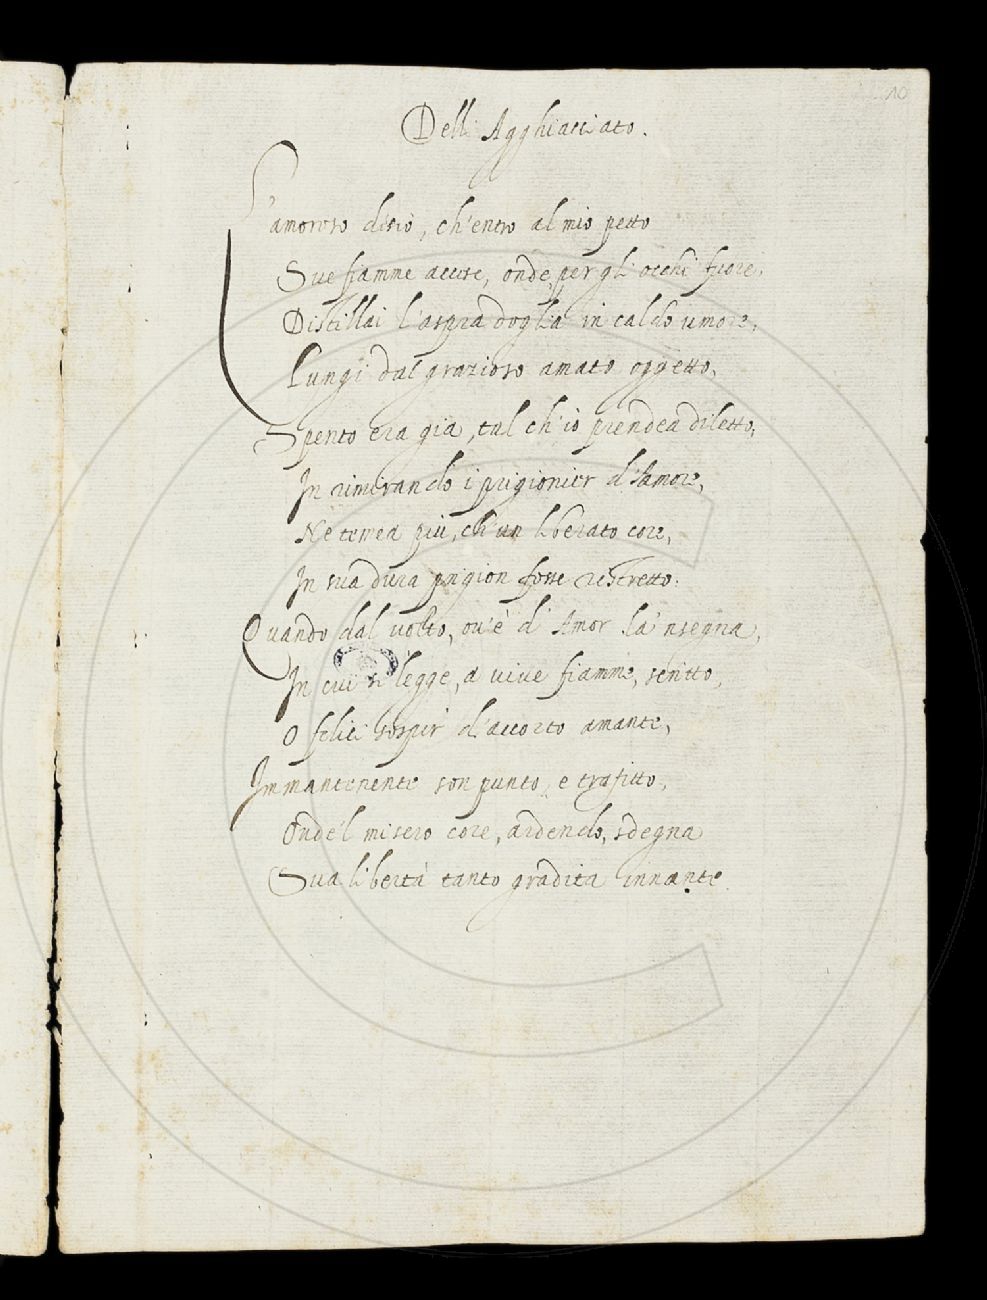 10
Dell Agghiacciato.
L'amoroso disio, ch'entro al mio petto
Sue fiamme accese, onde per gli occhi fuore,
Distillai l'aspra doglia in caldo umore,
Lungi dal grazioso amato oggetto,
Spento era già, tal ch'io prendea diletto,
In rimirando i prigionier d'Amore,
Ne temea più, ch'un liberato core,
In sua dura prigion fosse ristretto.
Quando dal volto, ov'è d'Amor la'nsegna,
In cui si legge, a vive fiamme, scritto,
O felici sospir d'accorto amante,
Immantenente son punto, e trafitto,
Onde'l misero core, ardendo, sdegna
Sua libertà tanto gradita innante